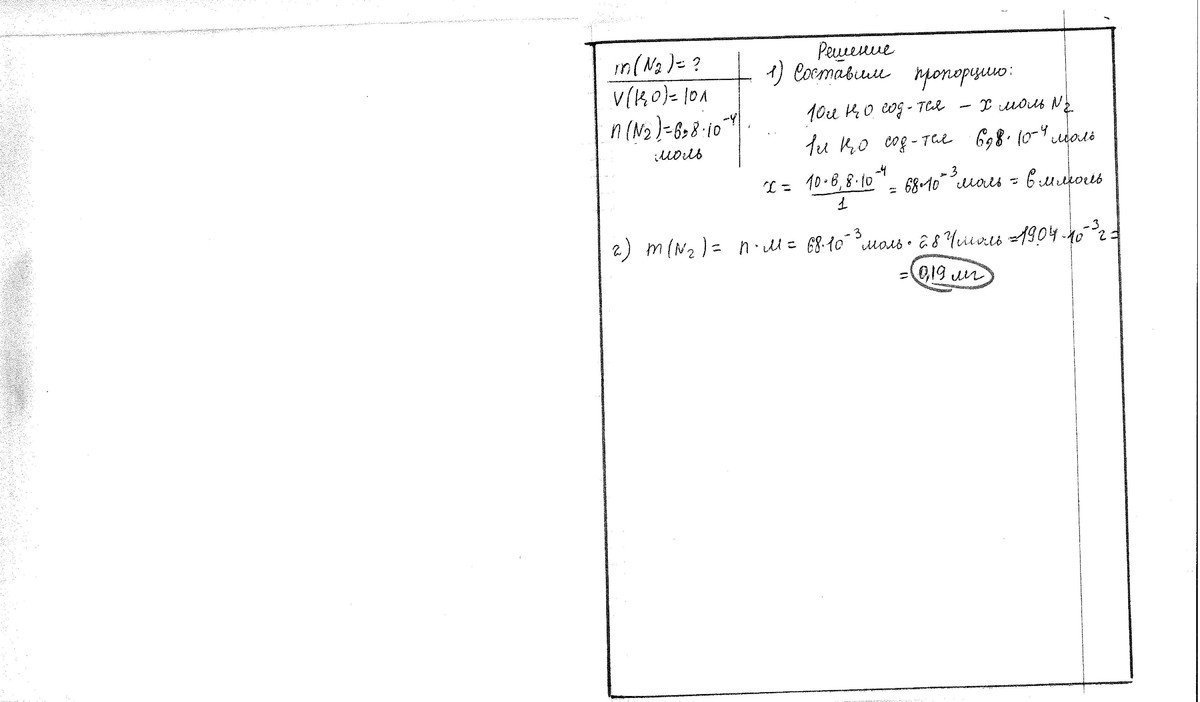 Решение
m(N₂)=?
V(H₂O)=10л
n(N₂)=6,8·10⁻⁴
моль
1) Составим пропорцию:
10л H₂O сод-тся – x моль N₂
1л H₂O сод-тся 6,8·10⁻⁴ моль
x = 10·6,8·10⁻⁴ / 1 = 68·10⁻³ моль = 6 ммоль
2) m(N₂) = n·M = 68·10⁻³ моль · 28 г/моль = 1904·10⁻³ г =
= 0,19 мг